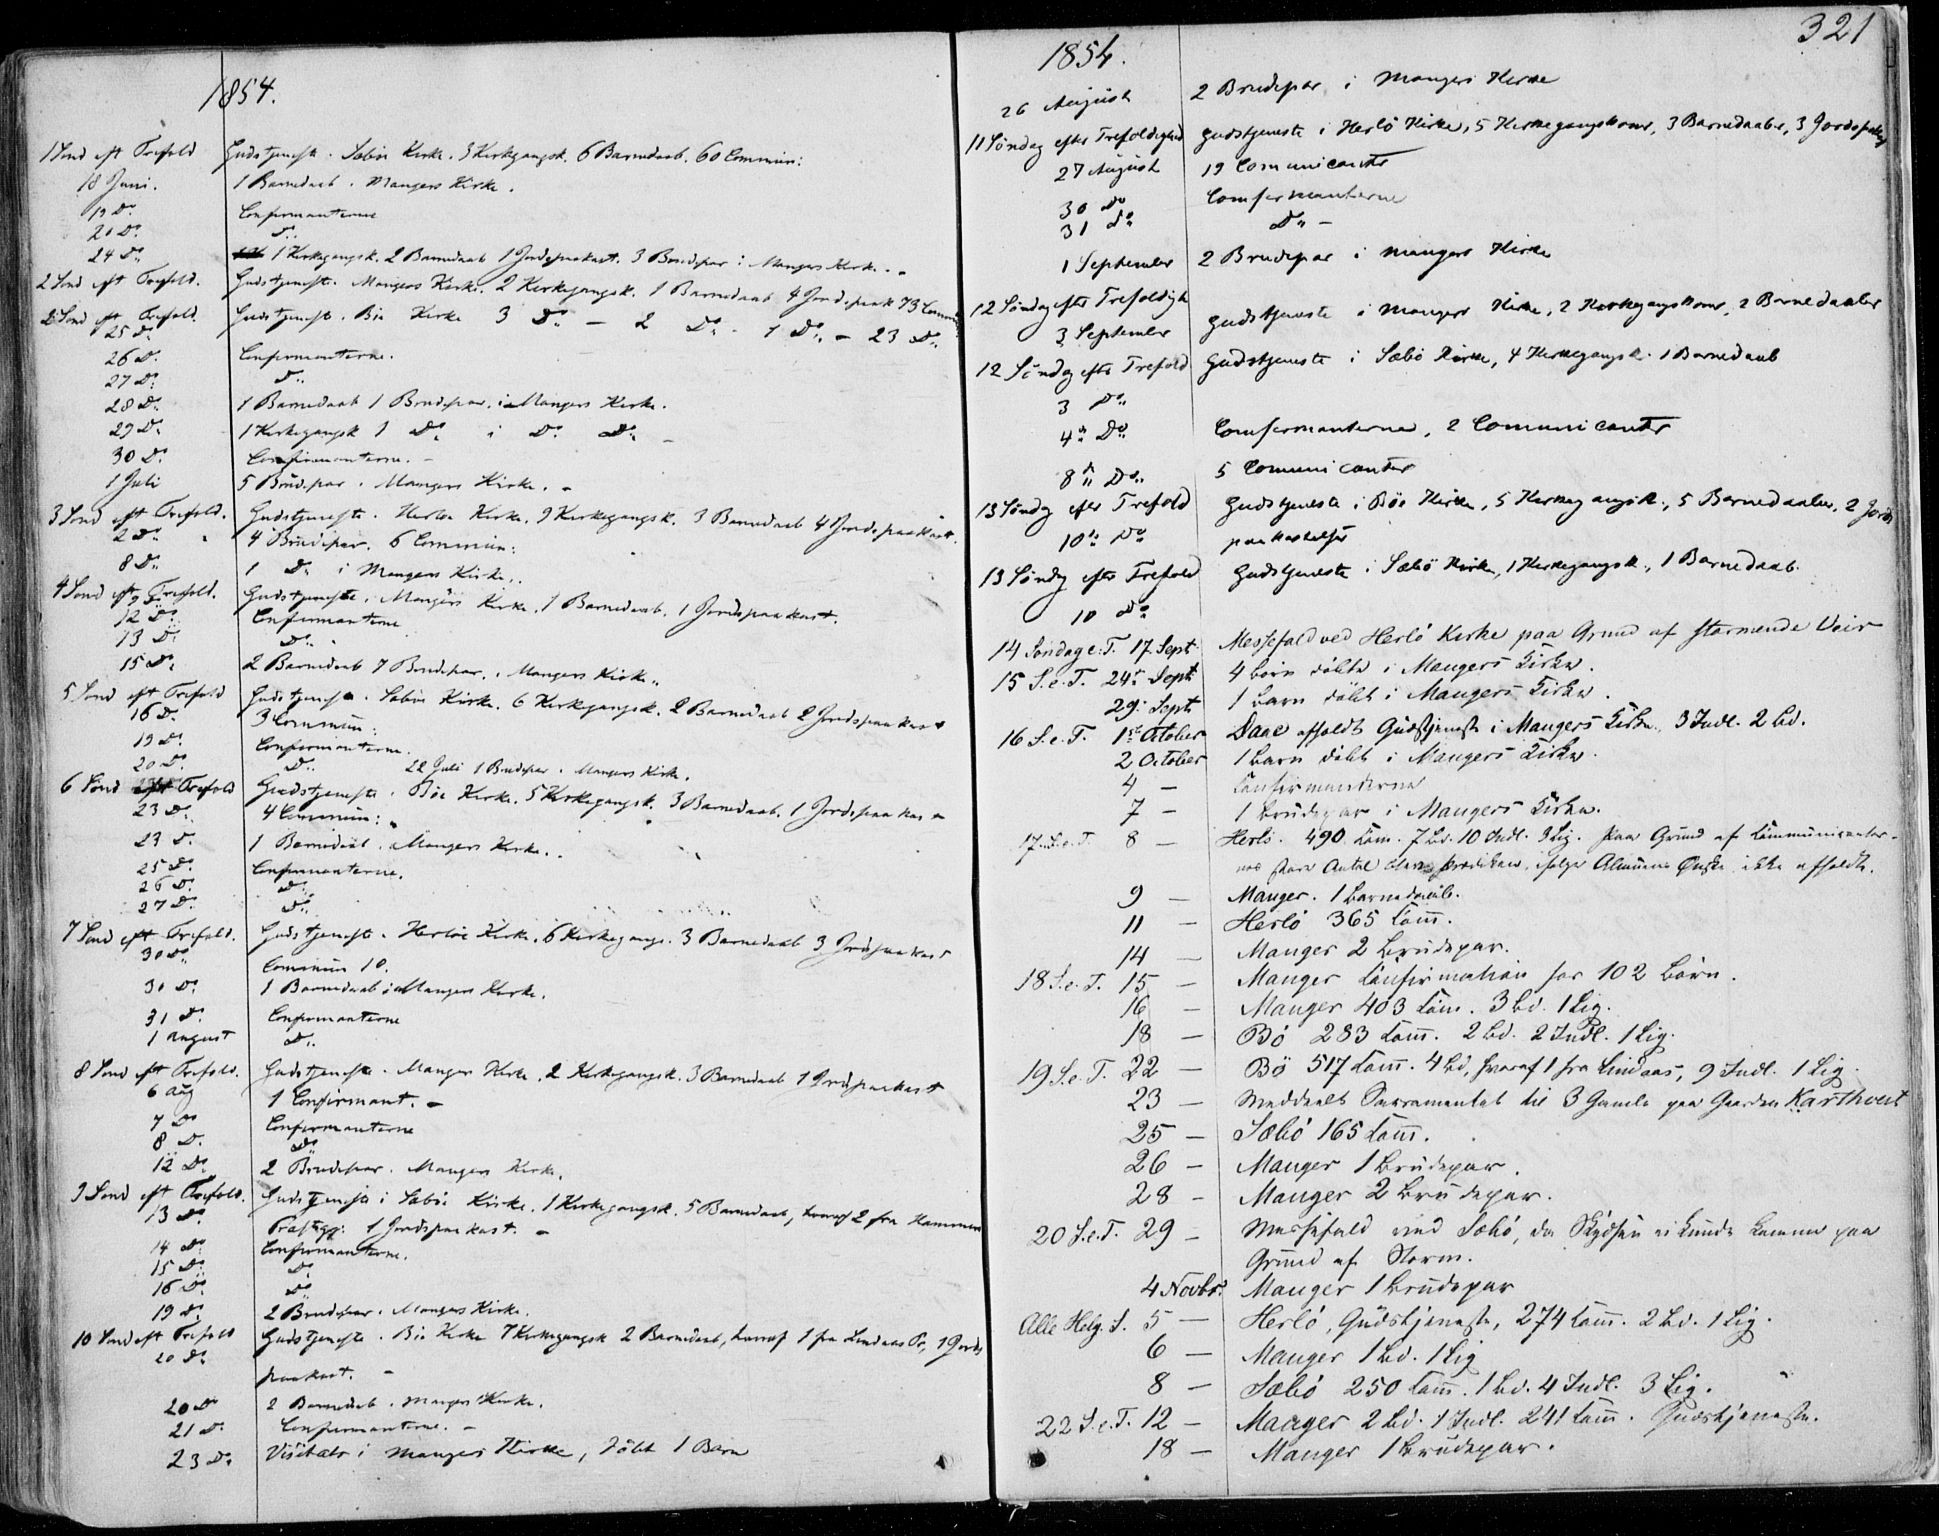 1854.
1 Sønd eft Trefold Gudstjeneste i Sæbøe Kirke. 3 Kirkegangsk. 6 Barnedaab. 60 Commun:
18 Juni. 1 Barnedaab i Mangers Kirke.
19 Do. Confirmanterne
20 Do. Do.
24 Do. 1 Kirkegangsk. 2 Barnedaab 1 Jordspaakast. 3 Brudepar i Mangers Kirke. -
2 Sønd eft Trefold. Gudstjeneste i Mangers Kirke. 2 Kirkegangsk. 1 Barnedaab 4 Jordspaak 73 Commun
2 Sønd eft Trefold. Gudstjeneste i Bøe Kirke 3 Do. - 2 Do. - 1 Do. - 23 Do.
25 Do.
26 Do. Confirmanterne.
27 Do. Do.
28 Do. 1 Barnedaab 1 Brudepar i Mangers Kirke.
29 Do. 1 Kirkegangsk 1 Do. i Do. Do. -
30 Do. Confirmanterne. -
1 Juli 5 Brudepar i Mangers Kirke. -
3 Sønd eft Trefold. Gudstjeneste i Herløe Kirke. 9 Kirkegangsk. 3 Barnedaab 4 Jordspaakast.
2 Do. 4 Brudepar. 6 Commun:
8 Do. 1 Do. i Mangers Kirke.
4 Sønd eft Trefold. Gudstjeneste i Mangers Kirke. 1 Barnedaab. 1 Jordspaakast.
9 Do.
12 Do. Confirmanterne
13 Do. Do.
15 Do. 2 Barnedaab 7 Brudepar i Mangers Kirke.
5 Sønd eft Trefold Gudstjeneste i Sæbøe Kirke. 6 Kirkegangsk. 2 Barnedaab 2 Jordspaakast
16 Do. 3 Commun:
19 Do. Confirmanterne.
20 Do. Do. 22 Juli 1 Brudepar i Mangers Kirke.
6 Sønd eft Trefold Gudstjeneste i Bøe Kirke. 5 Kirkegangsk. 3 Barnedaab. 1 Jordspaakast
23 Do. 4 Commun:
23 Do. 1 Barnedaab i Mangers Kirke.
25 Do. Confirmanterne.
26 Do. Do.
27 Do. Do.
7 Sønd eft Trefold. Gudstjeneste i Herløe Kirke. 6 Kirkegangs. 3 Barnedaab 3 Jordspaakast
30 Do. Commun 10.
30 Do. 1 Barnedaab i Mangers Kirke.
31 Do. Confirmanterne
1 August Do.
8 Sønd eft Trefold. Gudstjeneste i Manger Kirke. 2 Kirkegangsk. 3 Barnedaab 1 Jordspaakast
6 Aug 1 Confirmant. -
7 Do Confirmanterne
8 Do. Do
12 Do. 2 Brudepar i Mangers Kirke.
9 Sønd eft Trefold. Gudstjeneste i Sæbøe Kirke. 1 Kirkegangsk. 5 Barnedaab, hvoraf 2 fra Hammers
13 Do. Præstegj: 1 Jordspaakast. -
14 Do. Confirmanterne.
15 Do. Do.
16 Do. Do
19 Do. 2 Brudepar i Mangers Kirke.
10 Sønd eft Trefold Gudstjeneste i Bøe Kirke 7 Kirkegangsk 2 Barnedaab, hvoraf 1 fra Lindaas Pr, 1 Jords
20 Do. paakast. -
20 Do 2 Barnedaab i Mangers Kirke.
21 Do. Confirmanterne. -
23 Do. Visitats i Mangers Kirke, døbt 1 Barn
321
1854.
26 August 2 Brudepar i Mangers Kirke
11 Søndag efter Trefoldighed Gudstjeneste i Herlö Kirke, 5 Kirkegangskoner, 3 Barnedaaber, 3 Jordspaak
27 August 19 Comunicanter
30 Do Comfermanterne
31 Do Do -
1 September 2 Brudepar i Mangers Kirke
12 Søndag efter Trefoldigh Gudstjeneste i Mangers Kirke, 2 Kirkegangskoner, 2 Barnedaaber
3 September
12 Söndag efter Trefold Gudstjeneste i Sæbö Kirke, 4 Kirkegangsk. 1 Barnedaab
3 Do.
4de Do. Comfermanterne, 2 Comunicanter
8de Do. 5 Comunicanter
13 Søndag efter Trefold Gudstjeneste i Böe Kirke, 5 Kirkegangsk., 5 Barnedaaber, 2 Jords
10de Do paakastelser
13 Søndag efter Trefold Gudstjeneste i Sæbö Kirke, 1 Kirkegangsk., 1 Barnedaab.
10 Do
14 Søndag e. T. 17. Sept. Messefald ved Herlö Kirke paa Grund af stormende Veir
15 S. e. T. 24de Sept 4 Börn döbte i Mangers Kirke.
29. Sept 1 Barn döbt i Mangers Kirke.
16 S. e. T. 1ste October Daae afholdt Gudstjeneste i Mangers Kirke. 3 Indl. 2 Bd.
2 October 1 Barn döbt i Mangers Kirke.
4 - Confirmanterne
7 - 1 Brudepar i Mangers Kirke.
17. S. e. T. 8 - Herlö. 490 Com. 7 Bd. 10 Indl. 3 Lig. Paa Grund af Communicanter-
nes store Antal blev Prædiken, ifølge Almuens Ønske, ikke afholdt.
9 - Manger. 1 Barnedaab.
11 - Herlö 365 Com.
14 - Manger 2 Brudepar.
18 S. e. T. 15 - Manger Confirmation for 102 Börn.
16 - Manger 403 Com. 3 Bd. 1 Lig.
18 - Bö 283 Com. 2 Bd. 2 Indl. 1 Lig.
19 S. e. T. 22 - Bö 517 Com. 4 Bd, hvoraf 1 fra Lindaas, 9 Indl. 1 Lig.
23 - Meddeelt Sacramentet til 3 Gamle paa Gaarden Karthveit
25 - Sæbö 165 Com.
26 - Manger 1 Brudepar.
28 - Manger 2 Brudepar.
20 S. e. T. 29 - Messefald ved Sæbö, da Skydsen ei kunde komme paa
Grund af Storm.
4 Novbr. Manger 1 Brudepar
Alle Helg. S. 5 - Herlö, Gudstjeneste, 274 Com. 2 Bd. 1 Lig.
6 - Manger 1 Bd. 1 Lig
8 - Sæbö 250 Com. 1 Bd. 4 Indl. 3 Lig.
22 S. e. T. 12 - Manger 2 Bd. 1 Indl. 241 Com. Gudstjeneste.
18 - Manger 1 Brudepar.